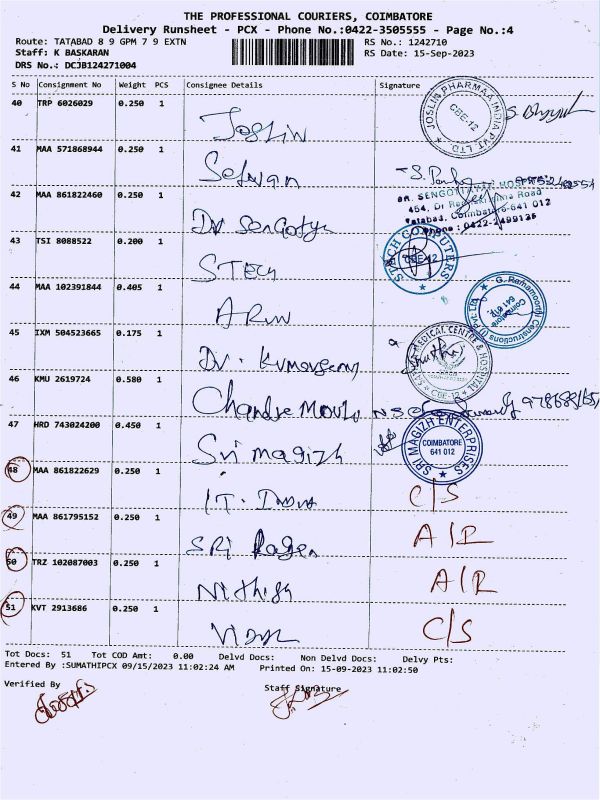 THE PROFESSIONAL COURIERS, COIMBATORE
Delivery Runsheet - PCX - Phone No.:0422-3505555 - Page No.:4
Route: TATABAD 8 9 GPM 7 9 EXTN RS No.: 1242710
Staff: K BASKARAN RS Date: 15-Sep-2023
DRS No.: DCJB124271004
S No Consignment No Weight PCS Consignee Details Signature
40 TRP 6026029 0.250 1 Joslin
JOSLIN PHARMAA INDIA PVT. LTD. CBE-12
41 MAA 571868944 0.250 1 Selvan
42 MAA 861822460 0.250 1
DR. SENGOTTAIYAN HOSPITAL
454, Dr Road
Tatabad, Coimbatore-641 012
Phone : 0422-2499126
43 TSI 8088522 0.200 1 STech
STECH COMPUTERS CBE-12
44 MAA 102391844 0.405 1 Arun
G. Ramamoorthi Constructions (I) Pvt. Ltd.
Coimbatore 641 012.
45 IXM 504523665 0.175 1
MEDICAL CENTRE & HOSPITAL CBE-12
46 KMU 2619724 0.580 1
47 HRD 743024200 0.450 1 Sri magizh
SRI MAGIZH ENTERPRISES COIMBATORE 641 012
48 MAA 861822629 0.250 1 C/S
49 MAA 861795152 0.250 1 SRI A/R
50 TRZ 102087003 0.250 1 A/R
51 KVT 2913686 0.250 1 C/S
Tot Docs: 51 Tot COD Amt: 0.00 Delvd Docs: Non Delvd Docs: Delvy Pts:
Entered By :SUMATHIPCX 09/15/2023 11:02:24 AM Printed On: 15-09-2023 11:02:50
Verified By Staff Signature